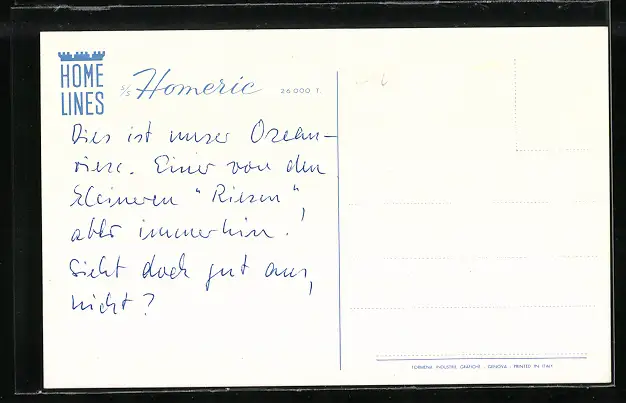 HOME
LINES
S/S Homeric 26000 T.
Dies ist unser Ozean-
riese. Einer von den
kleineren "Riesen",
aber immerhin!
Sieht doch gut aus,
nicht?
FORMENA INDUSTRIE GRAFICHE - GENOVA - PRINTED IN ITALY